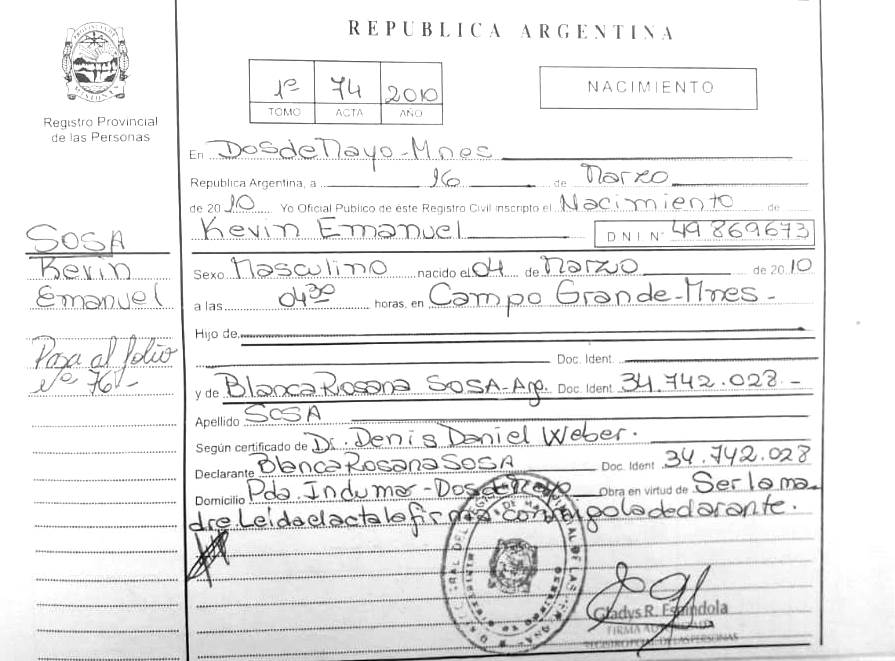 REPUBLICA ARGENTINA
Registro Provincial
de las Personas
1º 74 2010
TOMO ACTA AÑO
NACIMIENTO
En Dos de Mayo - Mnes
Republica Argentina, a 16 de Marzo
de 2010 Yo Oficial Publico de éste Registro Civil inscripto el Nacimiento de
Kevin Emanuel DNI Nº 49 869673
SOSA
Kevin
Emanuel
Pasa al folio
nº 76-
Sexo Masculino nacido el 04 de Marzo de 2010
a las 04 30 horas, en Campo Grande - Mnes -
Hijo de
Doc. Ident.
y de Blanca Rosana SOSA - Arg. Doc. Ident. 34.742.028 -
Apellido SOSA
Según certificado de Dr. Denis Daniel Weber.
Declarante Blanca Rosana SOSA Doc. Ident 34.742.028
Domicilio Pda. Indumar - Dos de Mayo Obra en virtud de Ser la ma
dre. Leida el acta la firma conmigo la declarante.
Gladys R. Espindola
FIRMA
REGISTRO PCIAL. DE LAS PERSONAS